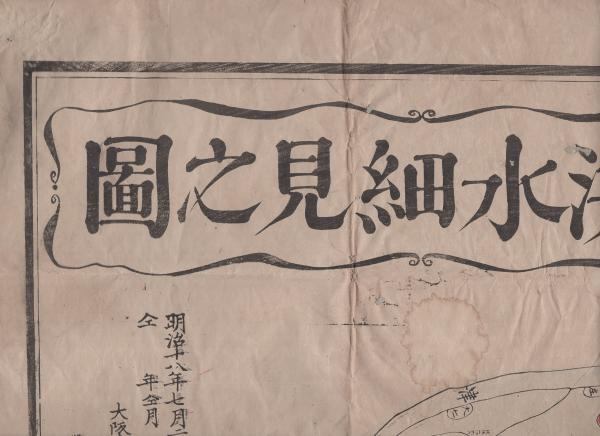 水細見之圖
明治十八年七月二
仝　年仝月
大阪
津